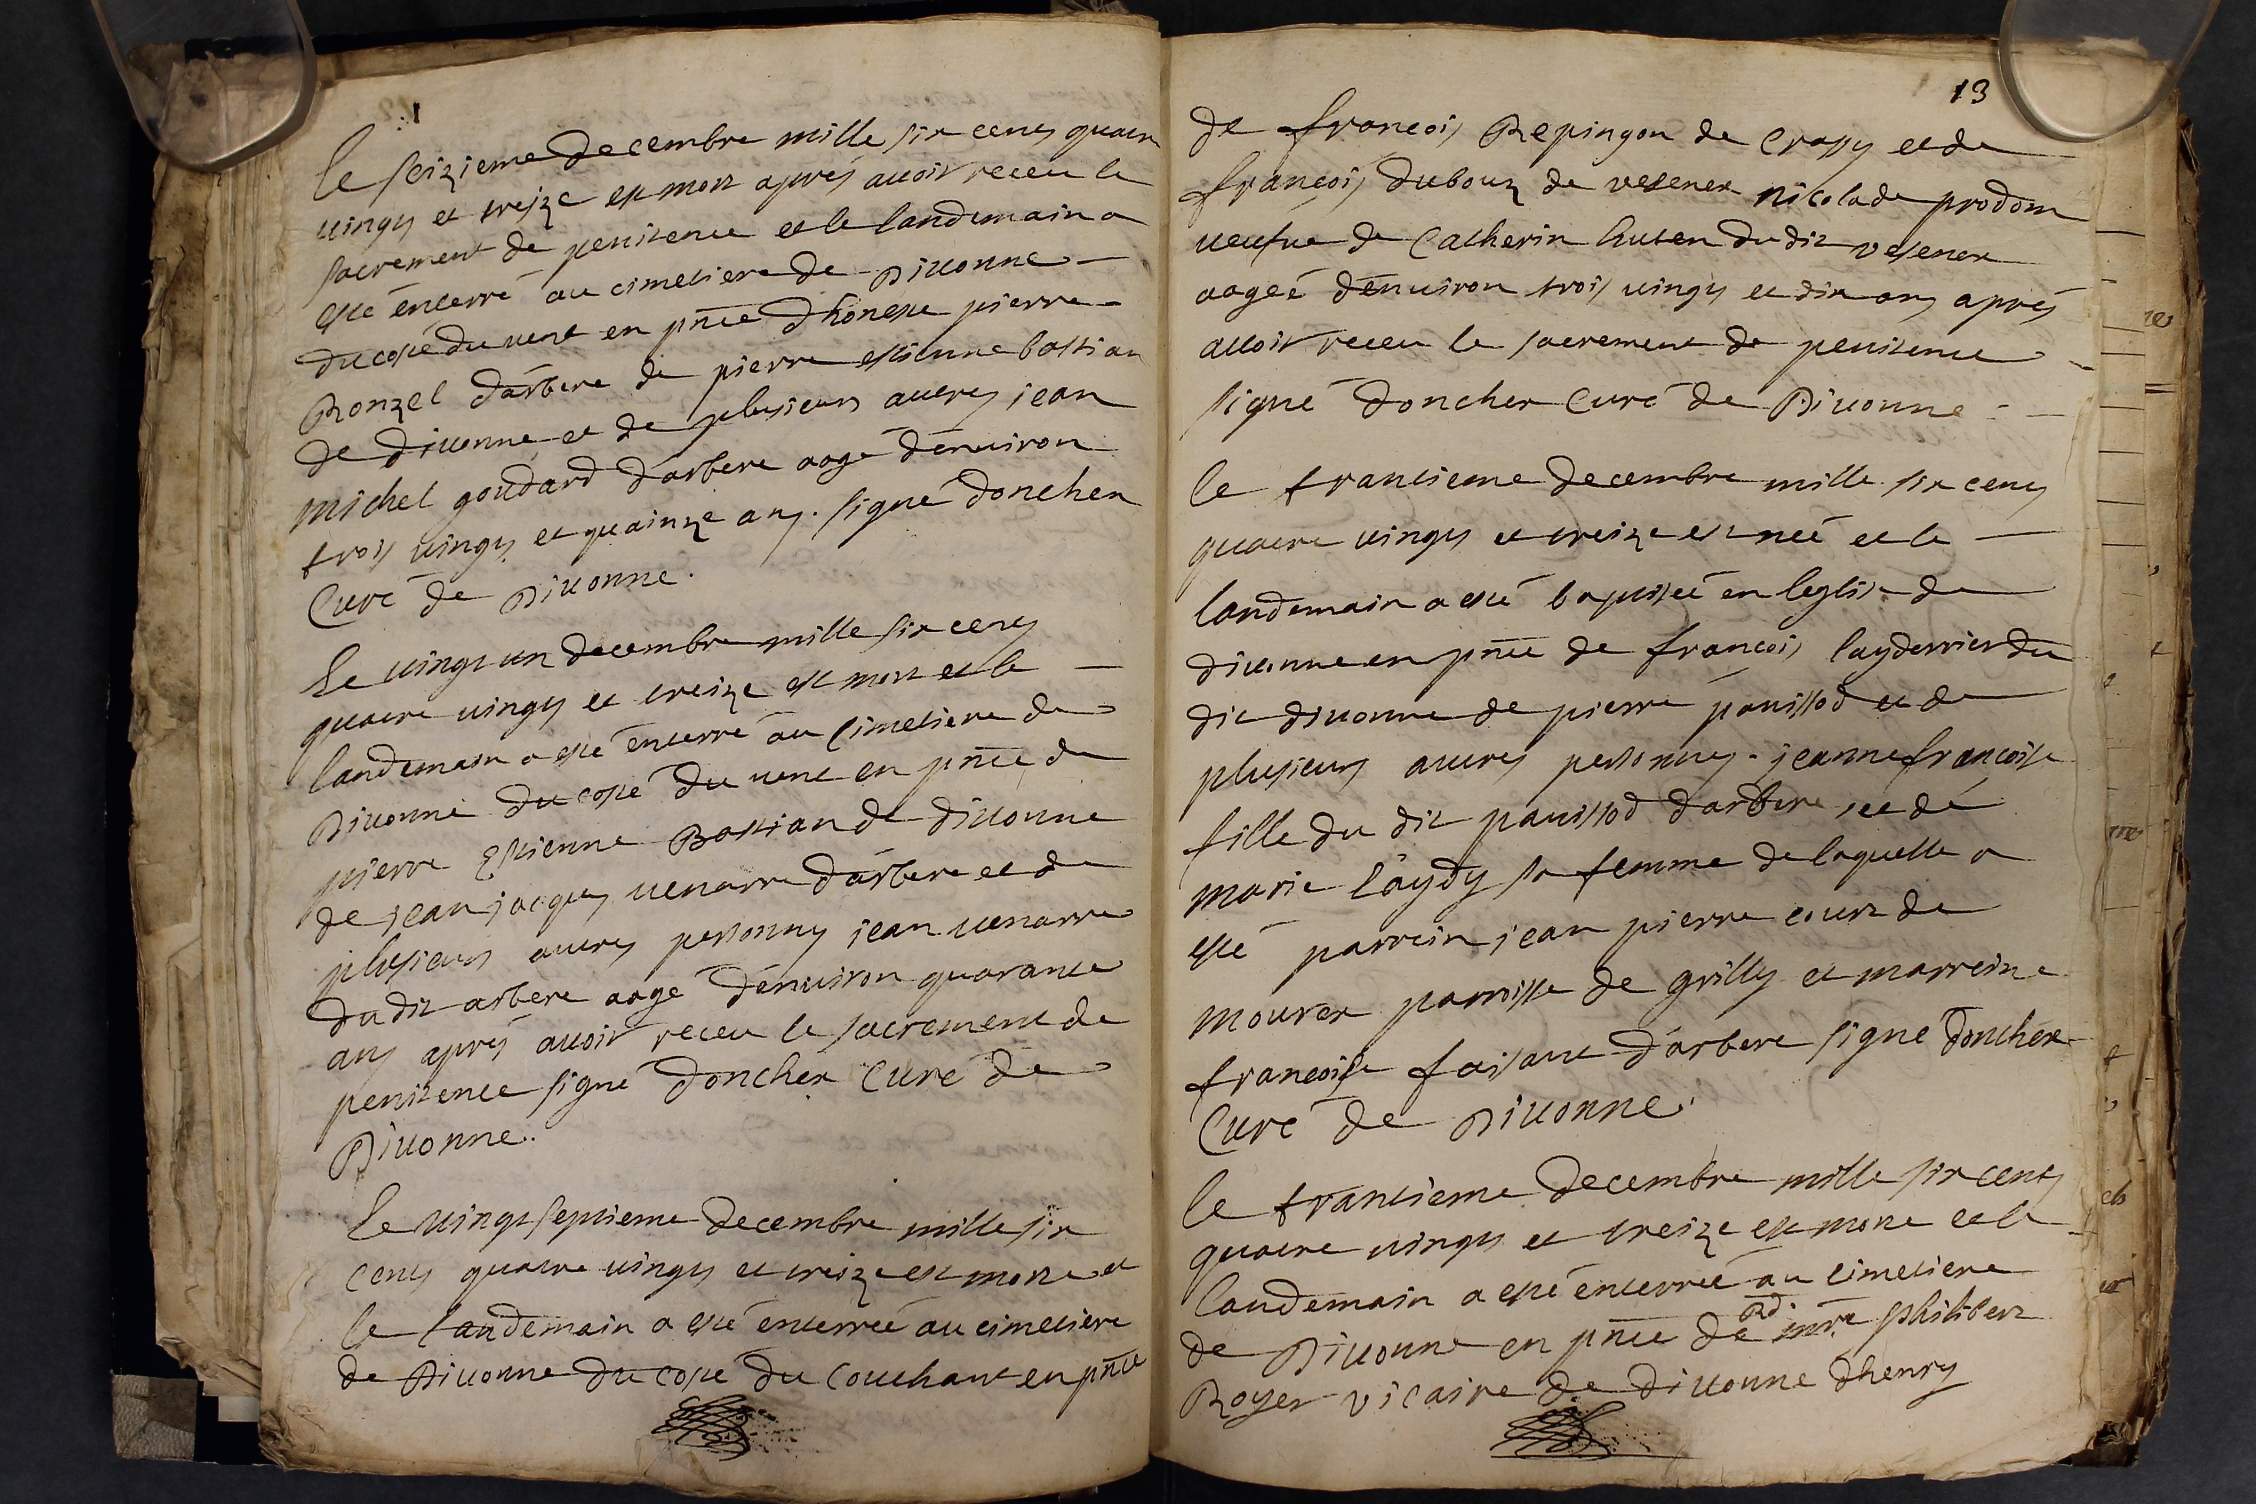 le seizieme decembre mille six cens quatre
vingts et treize est mort aprés auoir receu le
sacrement de penitence et le landemain a
esté énterré au cimetiere de Diuonne
du costé du uent en pñce dhoneste pierre
Ronzel darbere de pierre estienne bastian
de diuonne et de plusieurs autres jean
michel goudard darbere aagé dénuiron
trois uingts et quainze ans. signé doncher
Curé de Diuonne.
le uingt un decembre mille six cens
quatre uingts et treize est mort et le
landemain a esté énterré au Cimetiere de
Diuonne du costé du uent en pñce de
pierre Estienne Bastian de diuonne
de jean jacques uenarre darbere et de
plusieurs autres personnes jean uenarre
du dit arbere aagé dénuiron quarante
ans aprés auoir receu le sacrement de
penitence signé doncher Curé de
Diuonne.
le uingt septieme decembre mille six
cens quatre uingts et treize est morte et
le landemain a esté énterrée au cimetiere
de Diuonne du costé du Couchant en pñce
13
de francois Repingon de Crassy et de
francois dubouz de vesenex nicolade prodom
ueufue de Catherin huten du dit vesenex
aageé dénuiron trois uingts et dix ans aprés
auoir receu le sacrement de penitence
signé doncher Curé de Diuonne
le trantieme decembre mille six cens
quatre uingts et treize est neé et le
landemain a esté baptiseé en leglise de
diuonne en pñce de francois layderrier du
dit diuonne de pierre pauissod et de
plusieurs autres personnes. jeanne francoise
fille du dit pauissod darbere et dé
marie läydy sa femme de laquelle a
esté parrein jean pierre court de
mourex parroisse de grilly et marreine
francoise faisant darbere signé doncher
Curé de Diuonne.
le trantieme decembre mille six cens
quatre uingts et treize est morte et le
landemain a esté énterreé au cimetiere
de Diuonne en pñce de Rd. mre philibert
Royer vicaire de diuonne dhenry